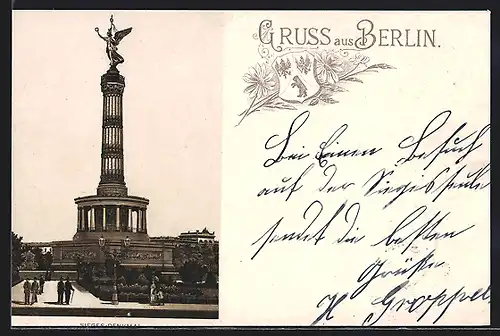 GRUSS aus BERLIN.
Bei Einem Besuch
auf der Siegessäule
sendet die besten
Grüße
H Groppel
SIEGES-DENKMAL